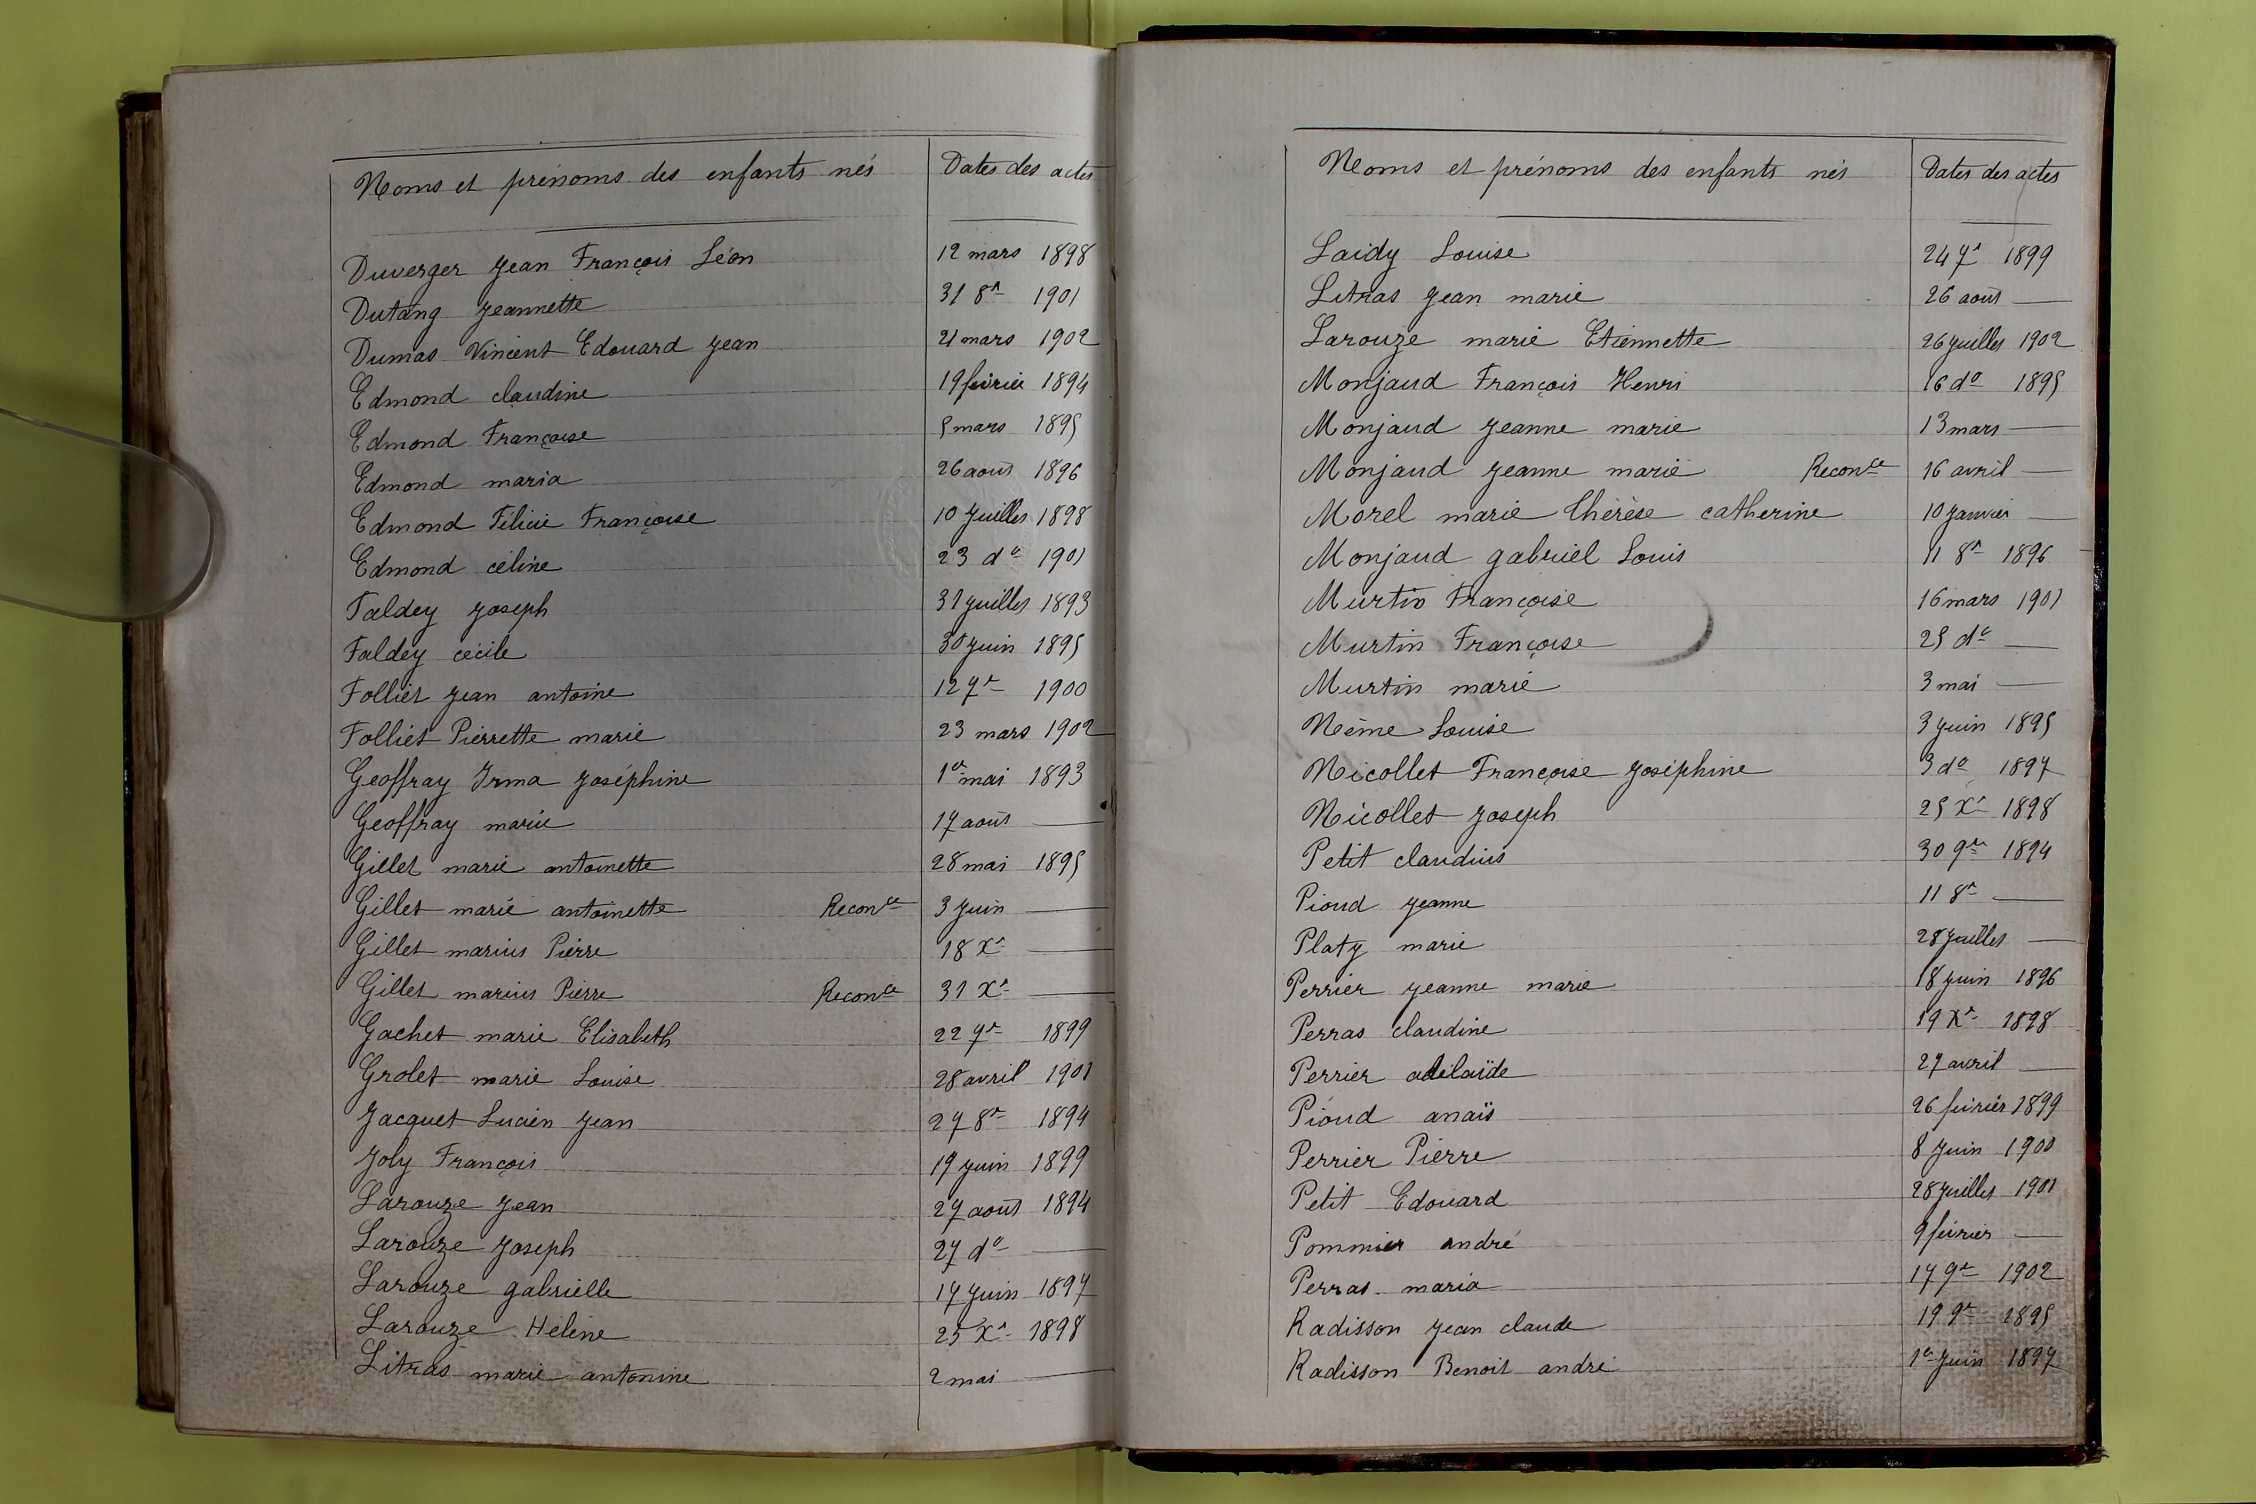 Noms et prénoms des enfants nés Dates des actes
Duverger Jean François Léon 12 mars 1898
Dutang Jeannette 31 8re 1901
Dumas Vincent Edouard Jean 21 mars 1902
Edmond claudine 19 février 1894
Edmond Françoise 5 mars 1895
Edmond maria 26 août 1896
Edmond Félicie Françoise 10 Juillet 1898
Edmond céline 23 do 1901
Faldey Joseph 31 Juillet 1893
Faldey cécile 30 Juin 1895
Folliet Jean antoine 12 7re 1900
Folliet Pierrette marie 23 mars 1902
Geoffray Irma Joséphine 1er mai 1893
Geoffray marie 17 août —
Gillet marie antoinette 28 mai 1895
Gillet marie antoinette Reconce 3 Juin —
Gillet marius Pierre 18 Xre —
Gillet marius Pierre Reconce 31 Xre —
Gachet marie Elisabeth 22 7re 1899
Grolet marie Louise 28 avril 1901
Jacquet Lucien Jean 27 8re 1894
Joly François 19 Juin 1899
Larouze Jean 27 août 1894
Larouze Joseph 27 do —
Larouze gabrielle 17 Juin 1897
Larouze Hélène 25 Xre 1898
Litras marie antonine 2 mai —
Noms et prénoms des enfants nés Dates des actes
Laidy Louise 24 7re 1899
Litras Jean marie 26 août —
Larouze marie Etiennette 26 Juillet 1902
Monjaud François Henri 16 do 1895
Monjaud Jeanne marie 13 mars —
Monjaud Jeanne marie Reconce 16 avril —
Morel marie Thérèse catherine 10 Janvier —
Monjaud gabriel Louis 11 8re 1896
Murtin Françoise 16 mars 1901
Murtin Françoise 25 do —
Murtin marie 3 mai —
Nême Louise 3 Juin 1895
Nicollet Françoise Joséphine 3 do 1897
Nicollet Joseph 25 Xre 1898
Petit claudius 30 9re 1894
Pioud Jeanne 11 8re —
Platy marie 28 Juillet —
Perrier Jeanne marie 18 Juin 1896
Perras claudine 19 Xre 1898
Perrier adélaïde 27 avril —
Pioud anaïs 26 février 1899
Perrier Pierre 8 Juin 1900
Petit Edouard 28 Juillet 1901
Pommier andré 9 février —
Perras maria 17 9re 1902
Radisson Jean claude 19 9re 1895
Radisson Benoit andré 1er Juin 1897